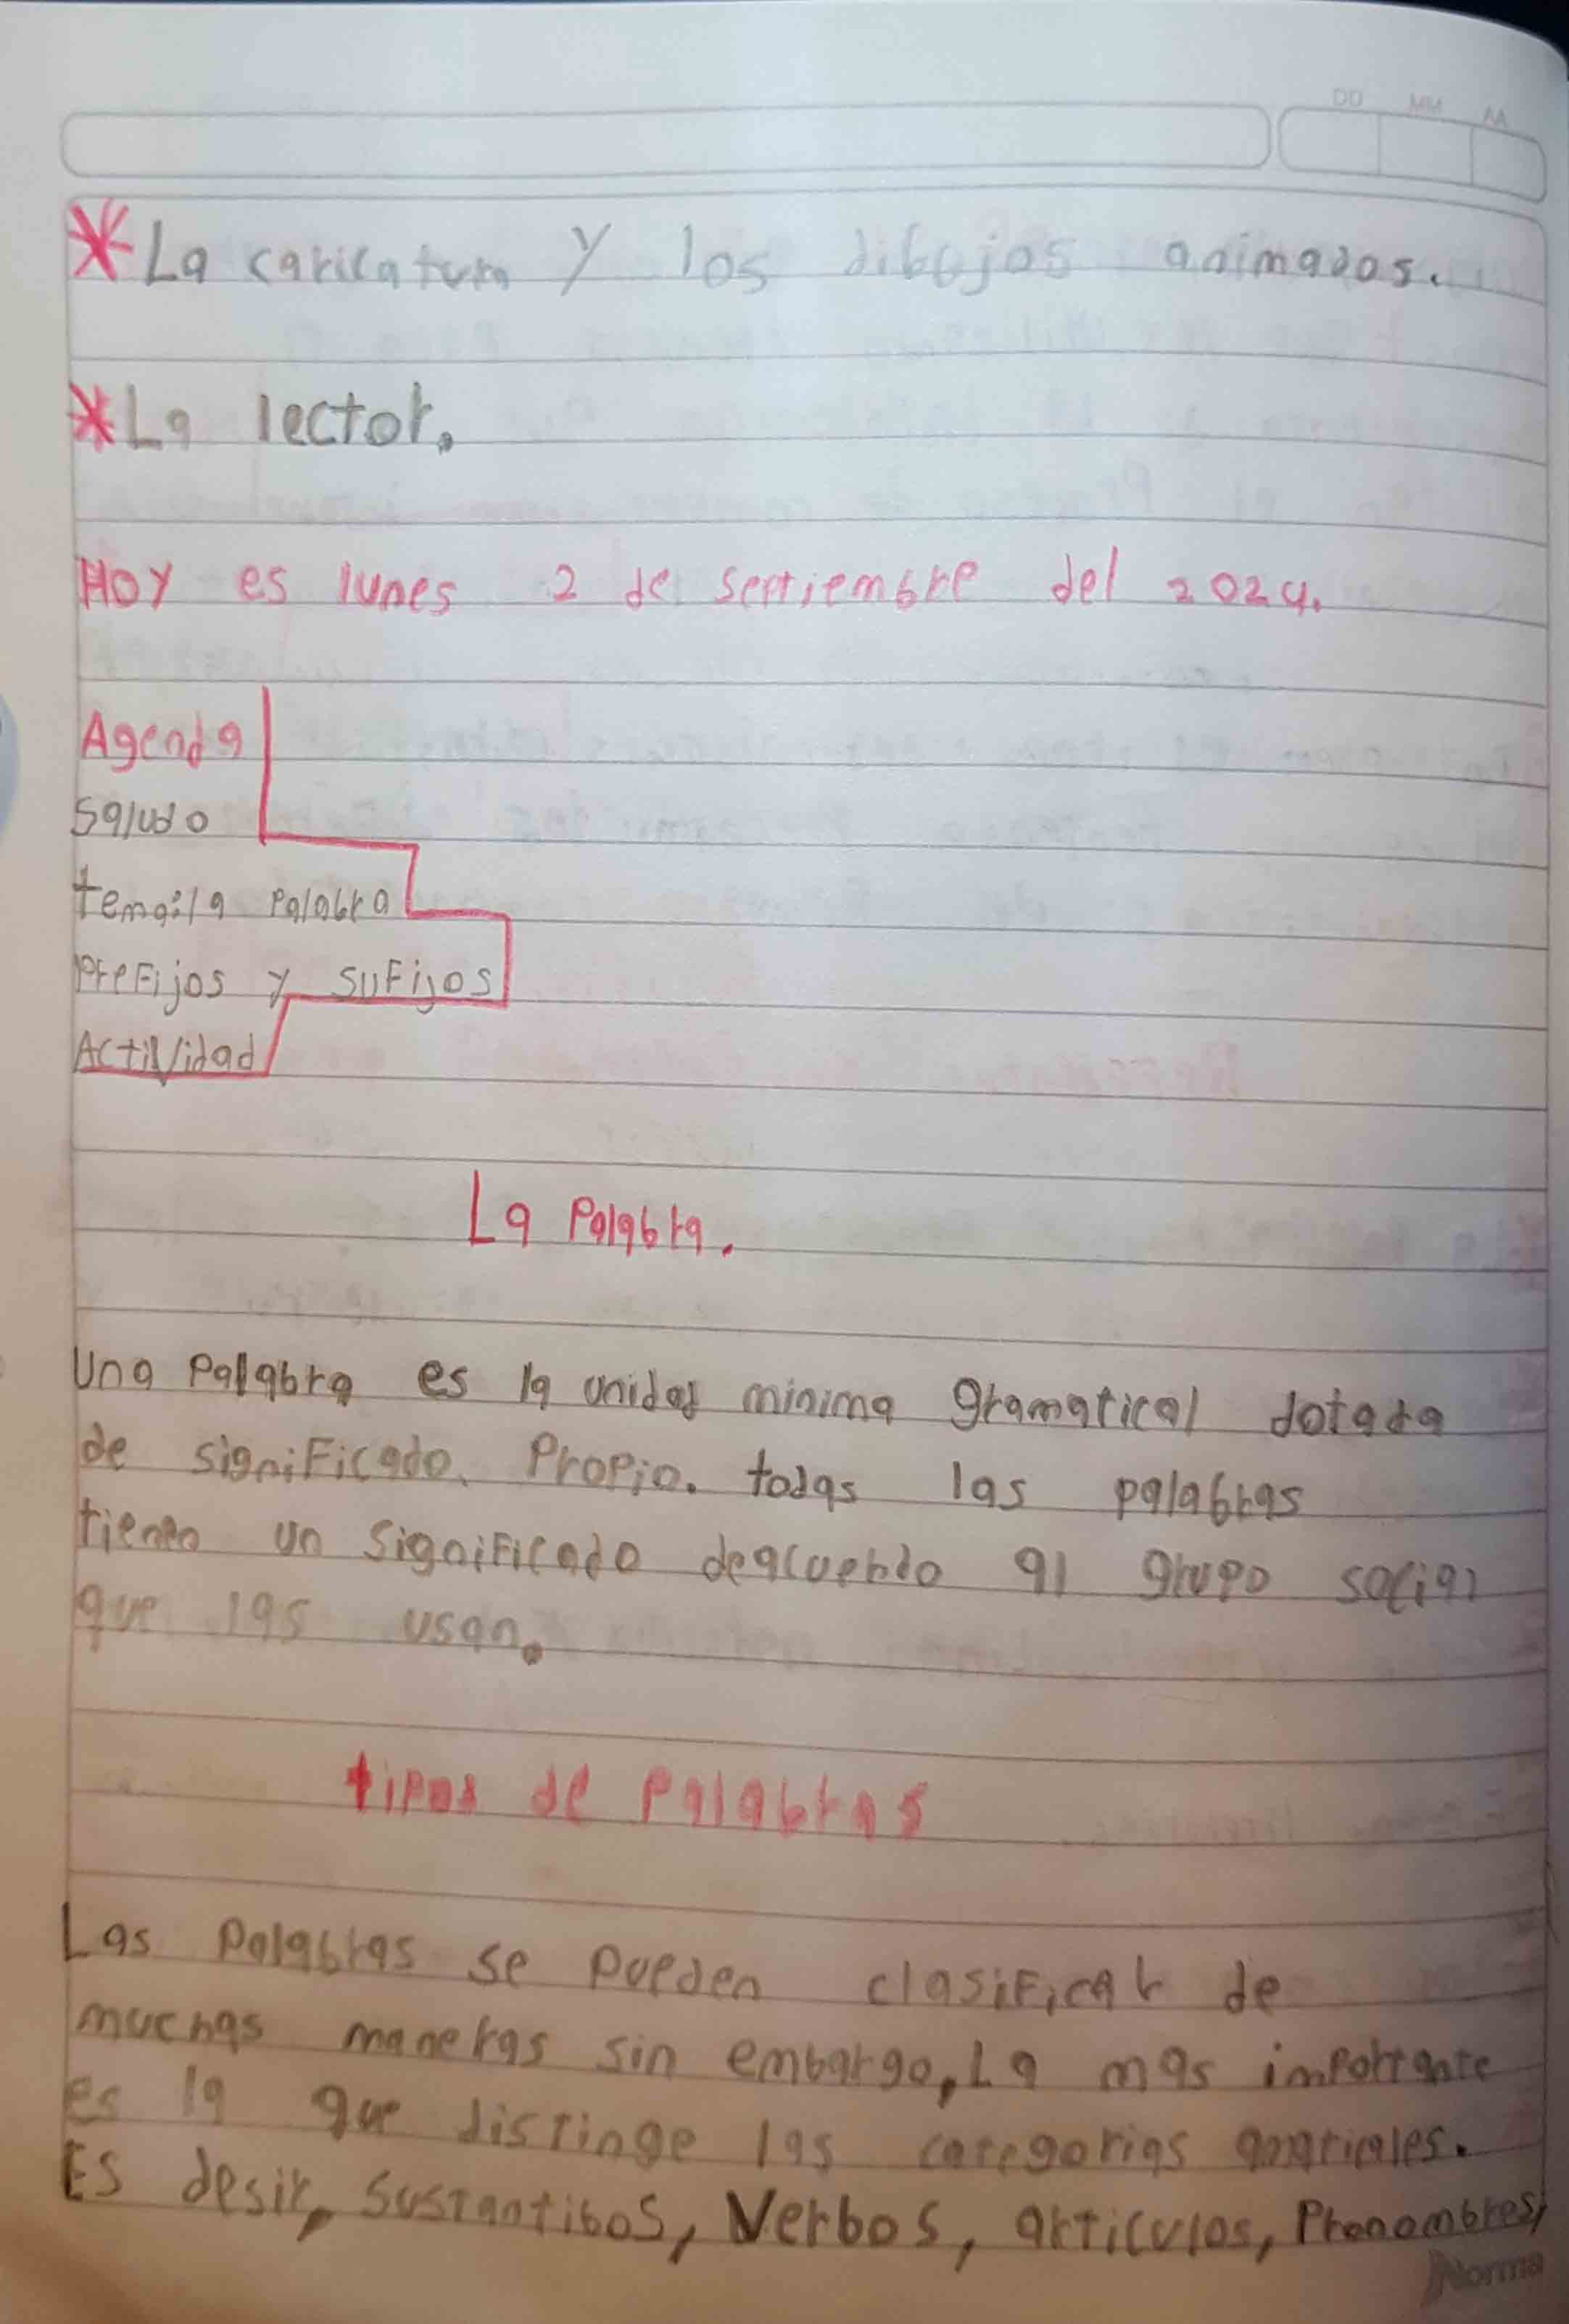 DD MM AA
*La caricatura y los dibujos animados.
*La lector.
Hoy es lunes 2 de septiembre del 2024.
Agenda
Saludo
tema:la palabra
prefijos y sufijos
Actividad
La palabra.
Una palabra es la unidad minima gramatical dotada
de significado. Propio. todas las palabras
tienen un significado deacuerdo al grupo social
que las usan.
tipos de palabras
Las palabras se pueden clasificar de
muchas maneras sin embargo, La mas importante
es la que distinge las categorias
Es desir, sustantibos, Verbos, articulos, Pronombres,
Norma